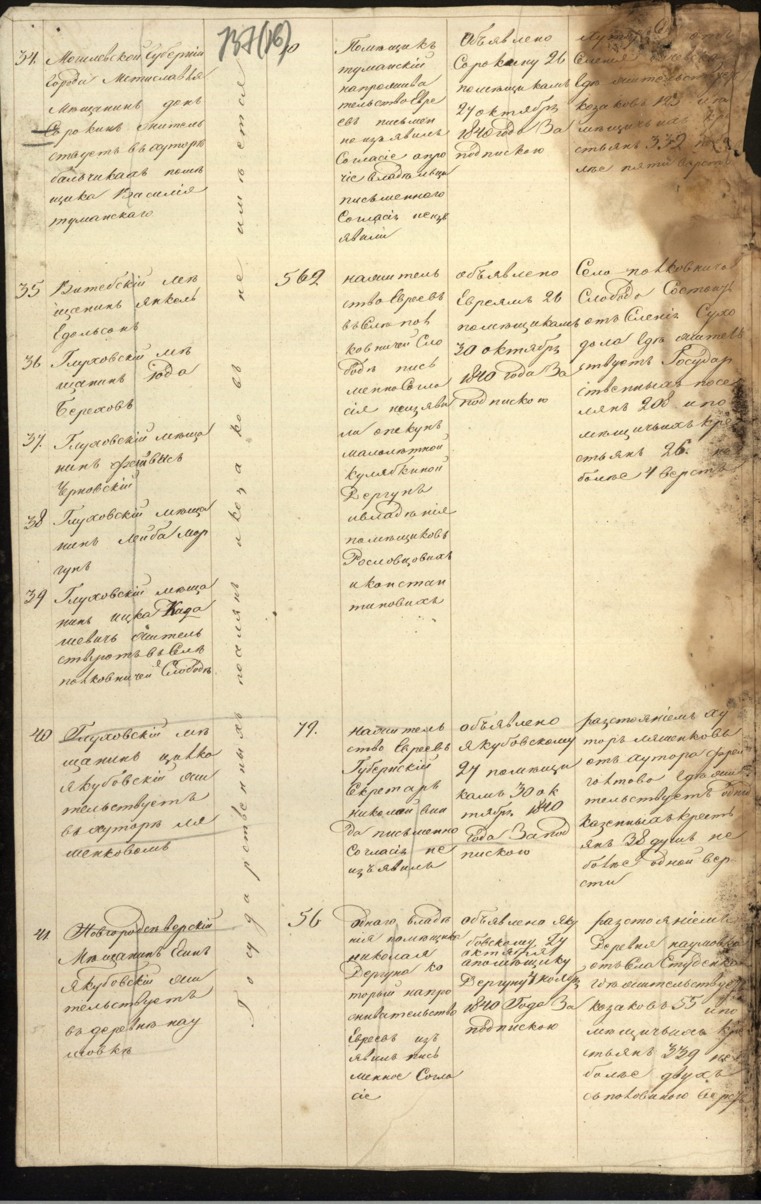 137(16)
34. Могилевской Губерніи
города Мстиславля
Мѣщанинъ
Сорокинъ житель
ствуетъ въ хуторѣ
бальчикахъ помѣ
щика Василія
туманскаго
0
Помѣщикъ
туманскій
на прожива
тельство Евре
евъ письмен
но изъявилъ
Согласіе а про
чіе владѣльцы
письменного
Согласія не изъ
явили
Объявлено
Сорокину 26
помѣщикамъ
27 октября
1840 года За
подпискою
козаковъ 123 и по
мѣщичьихъ кре
стьянъ 332 не
лѣе пяти верстъ
35 Витебскій мѣ
щанинъ Янкель
Едольсонъ
36 Глуховскій мѣ
щанинъ Юда
Береховъ
37. Глуховскій мѣща
нинъ Файвысъ
Черновскій
38 Глуховскій мѣща
нинъ Лейба Мор
гунъ
39 Глуховскій мѣща
нинъ Ицка Када
шевичь житель
ствуютъ въ Селѣ
полковничей Слободѣ
562
на житель
ство Евреевъ
въ Селѣ пол
ковничей Сло
бодѣ пись
менно Согла
сія неизъяви
ли опекунъ
малолѣтной
кулябкиной
Дергунъ
и владѣнія
помѣщиковъ
Рословцовихъ
и констан
тиновихъ
объявлено
Евреямъ 26
помѣщикамъ
30 октября
1840 года За
подпискою
Село полковнича
Слобода Состоитъ
отъ Селенія Сухо
дола где жительс
твуетъ Государ
ственныхъ посе
лянъ 208 и по
мѣщичьихъ кре
стьянъ 26. не
более 4 верстъ
40 Глуховскій мѣ
щанинъ ицько
якубовскій жи
тельствуетъ
въ хуторѣ ля
шенковомъ
79.
на житель
ство Евреевъ
Губернскій
Секретарь
николай вин
да письменно
Согласія не
изъявилъ
объявлено
Якубовскому
27 помѣщи
камъ 30 ок
тября 1840
года За под
пискою
разстояніемъ ху
торъ ляшенковъ
отъ хутора
где жи
тельствуетъ
казенныхъ кресть
янъ 38 душъ не
более одной вер
сти
41. Новгородсѣверскій
Мѣщанинъ
якубовскій жи
тельствуетъ
въ деревнѣ нау
мовкѣ
56
однаго владѣ
нія помѣщика
николая
Дергуна ко
торый на про
живательство
Евреевъ изъ
явилъ пись
менное Согла
сіе
объявлено яку
бовскому
октября
а помѣщику
Дергуну 7 ноября
1840 Года За
подпискою
разстояніемъ
Деревня наумовка
отъ села Студенка
где жительствую
козаковъ 55 и по
мѣщичьихъ кре
стьянъ 339 не
более двухъ
съ половиною верстъ
Государственныхъ поселянъ и козаковъ не имѣется